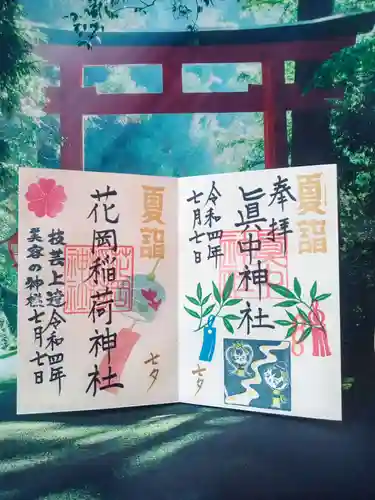 夏詣
奉拝
眞中神社
令和四年
七月七日
七夕
夏詣
花岡稲荷神社
七夕
技芸上達
美容の神様
令和四年
七月七日